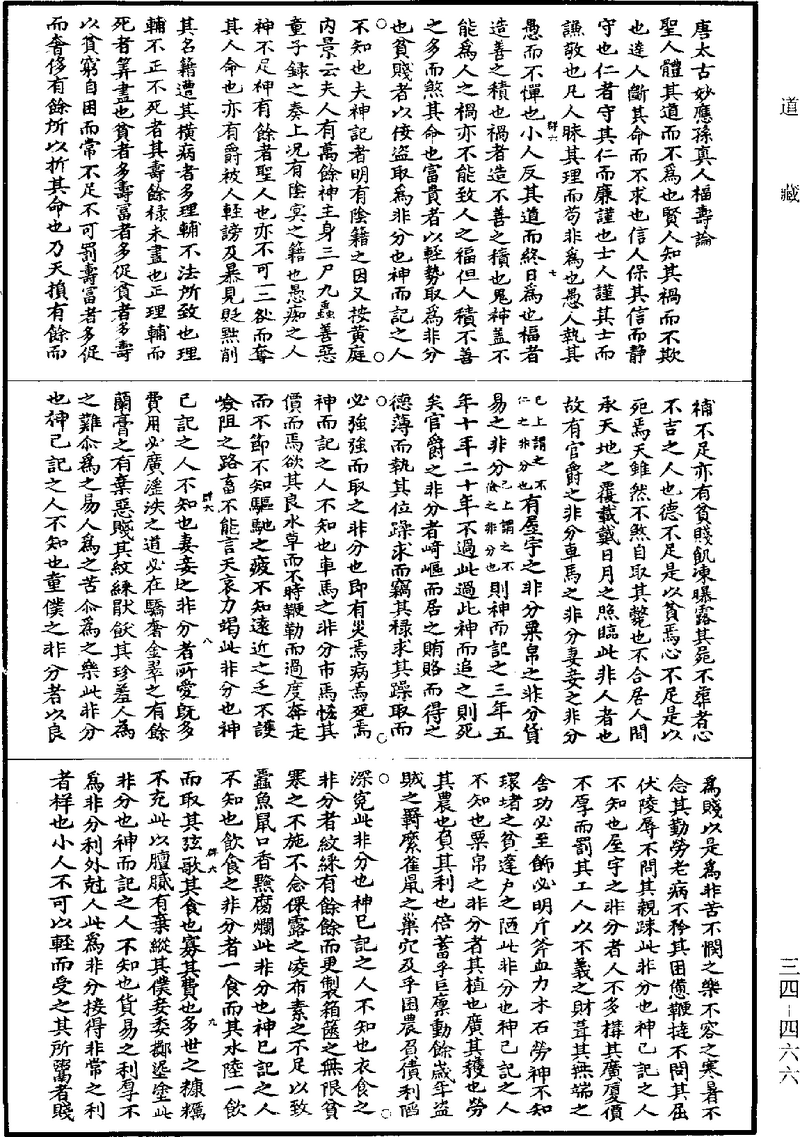 道藏
三四-四六六
唐太古妙應孫真人福壽論
聖人體其道而不為也賢人知其禍而不欺
也達人斷其命而不求也信人保其信而靜
守也仁者守其仁而廉謹也士人謹其士而
謙敬也凡人昧其理而苟非為也愚人執其
群六 七
愚而不憚也小人反其道而終日為也福者
造善之積也禍者造不善之積也鬼神蓋不
能為人之禍亦不能致人之福但人積不善
之多而煞其命也富貴者以輕勢取為非分
也貧賤者以佞盜取為非分也神而記之人
不知也夫神記者明有陰籍之因又按黃庭
內景云夫人有萬餘神主身三尸九蟲善惡
童子錄之奏上況有陰冥之籍也愚痴之人
神不足神有餘者聖人也亦不可一二咎而奪
其人命也亦有爵被人輕謗及暴見貶黜削
其名籍遭其橫病者多理輔不法所致也理
輔不正不死者其壽餘祿未盡也正理輔而
死者筭盡也貧者多壽富者多促貧者多壽
以貧窮自困而常不足不可罰壽富者多促
而奢侈有餘所以折其命也乃天損有餘而
補不足亦有貧賤飢凍曝露其屍不葬者心
不吉之人也德不足是以貧焉心不足是以
死焉天雖然不煞自取其斃也不合居人間
承天地之覆載戴日月之照臨此非人者也
故有官爵之非分車馬之非分妻妾之非分
已上謂之不仁之非分也有屋宇之非分粟帛之非分貨
易之非分已上謂之不儉之非分也則神而記之三年五
年十年二十年不過此過此神而追之則死
矣官爵之非分者崎嶇而居之賄賂而得之
德薄而執其位躁求而竊其祿求其躁取而
必強強而取之非分也即有災焉病焉死焉
神而記之人不知也車馬之非分市馬恡其
價而焉欲其良水草而不時鞭勒而過度奔走
而不節不知驅馳之疲不知遠近之乏不護
險阻之路畜不能言天哀力竭此非分也神
群六 八
已記之人不知也妻妾之非分者所愛既多
費用必廣淫泆之道必在驕奢金翠之有餘
蘭膏之有棄惡賤其紋綵猒飫其珍羞人為
之難尒為之易人為之苦尒為之樂此非分
也神已記之人不知也童僕之非分者以良
為賤以是為非苦不憫之樂不容之寒暑不
念其勤勞老病不矜其困憊鞭撻不問其屈
伏陵辱不問其親疎此非分也神已記之人
不知也屋宇之非分者人不多構其廣廈價
不厚而罰其工人以不義之財葺其無端之
舍功必至飾必明斤斧血力木石勞神不知
環堵之貧蓬戶之陋此非分也神已記之人
不知也粟帛之非分者其植也廣其穫也勞
其農也負其利也倍蓄乎巨廩動餘歲年盜
賊之羇縻雀鼠之巢穴及乎困農負債利陷
深冤此非分也神已記之人不知也衣食之
非分者紋綵有餘餘而更製箱篋之無限貧
寒之不施不念倮露之凌布素之不足以致
蠹魚鼠口香黦腐爛此非分也神已記之人
不知也飲食之非分者一食而其水陸一飲
群六 九
而取其弦歌其食也寡其費也多世之糠糲
不充此以膻膩有棄縱其僕妾委鄙塗此
非分也神而記之人不知也貨易之利厚不
為非分利外尅人此為非分接得非常之利
者祥也小人不可以輕而受之其所鬻者賤